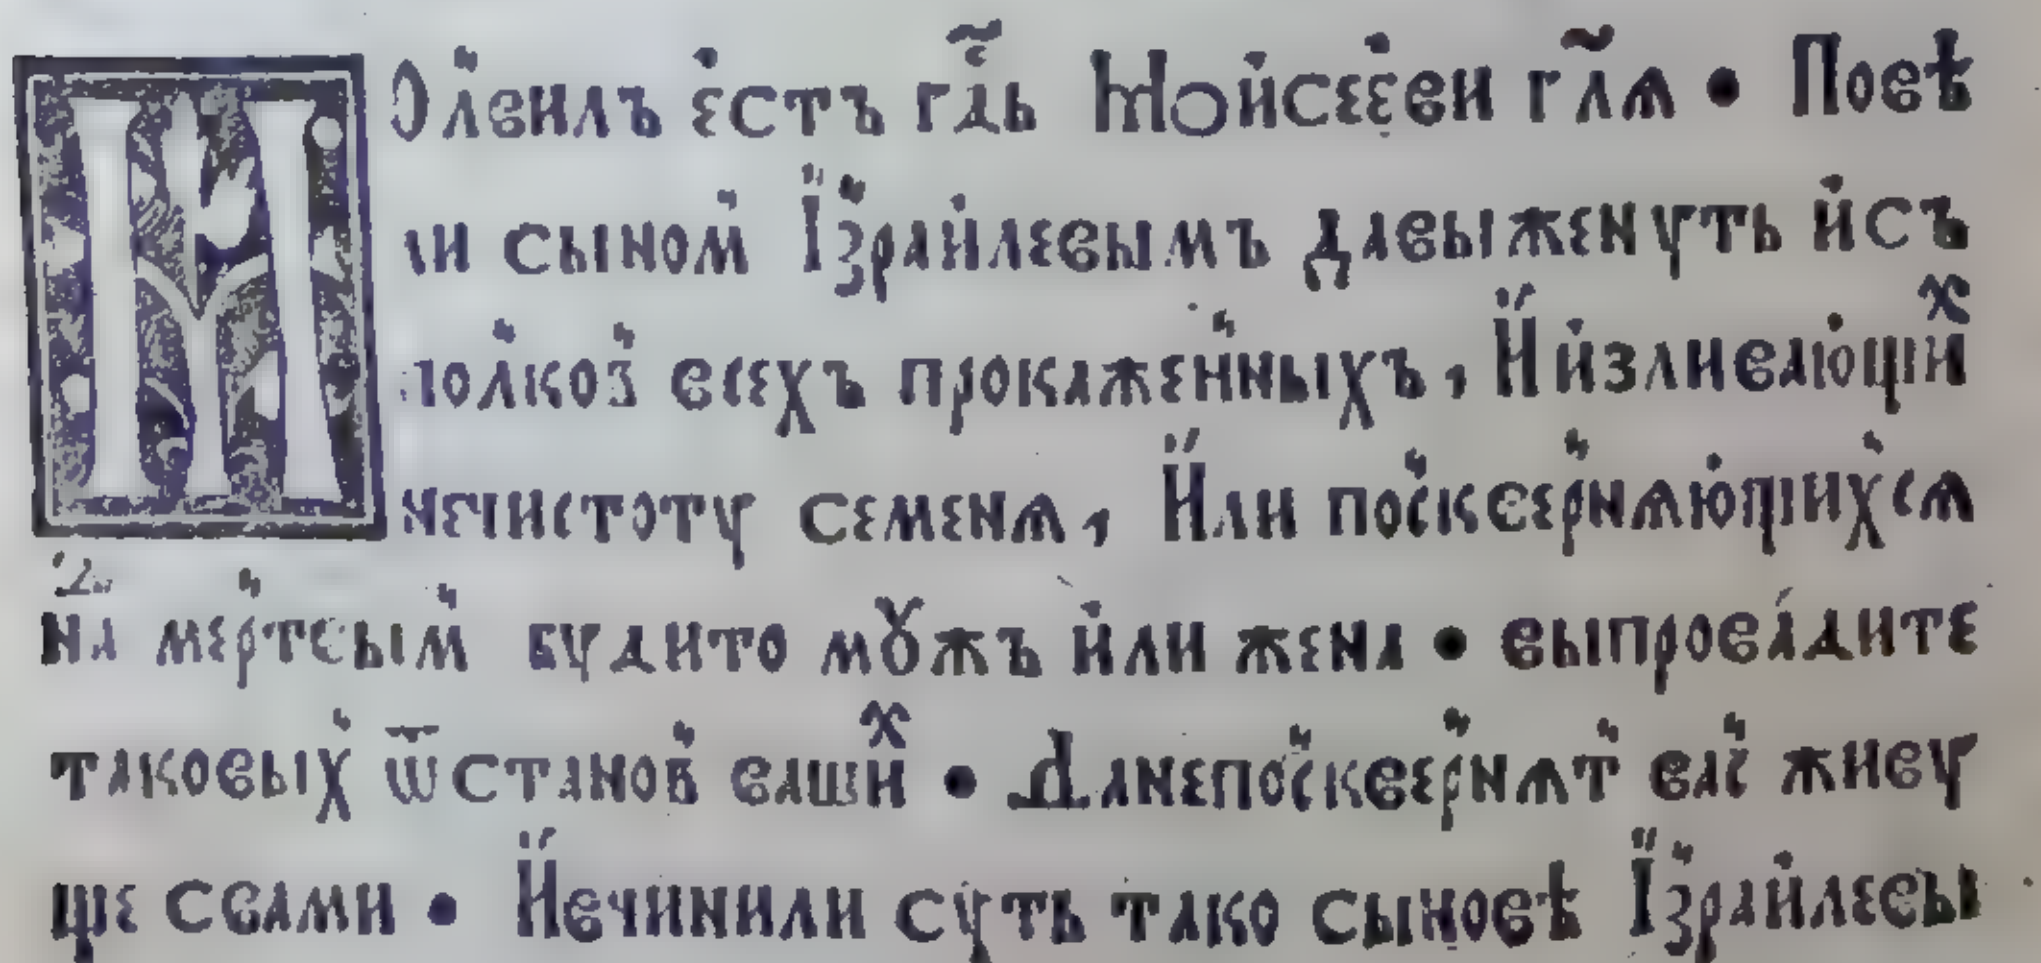 Мо́лвилъ є҆стъ гд҃ь Мои҆сеє҆ви гл҃ѧ • Повѣ
ли сыномъ І҆зраи҆левымъ дAвыженуть и҆съ
полковъ всехъ прокаженныхъ, И҆ и҆зливаю҆щиⷯ
нечистоту семенѧ, И҆ли посквернѧю҆щихсѧ
на мертвымъ будито мꙋжъ и҆ли жена • выпрова́дите
таковых ѿстановъ вашиⷯ • Данепосквернѧтъ вас живу
ще свами • И҆вчинили суть тако сыновѣ І҆зраи҆левы